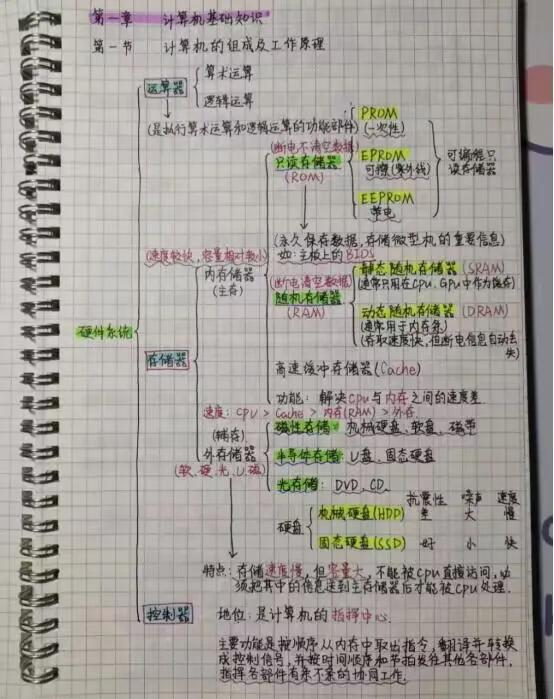 第一章 计算机基础知识
第一节 计算机的组成及工作原理
运算器 算术运算
逻辑运算
(是执行算术运算和逻辑运算的功能部件)
PROM
(一次性)
(断电不清空数据)
只读存储器
(ROM)
EPROM
可擦(紫外线)
EEPROM
带电
可编程只
读存储器
(永久保存数据,存储微型机的重要信息)
如:主板上的BIOS
(速度较快,容量相对较小)
内存储器
(主存)
(断电清空数据)
随机存储器
(RAM)
静态随机存储器(SRAM)
(通常只用在CPU、GPU中作为缓存)
动态随机存储器(DRAM)
(通常用于内存条)
(存取速度快,但断电信息自动丢
失)
硬件系统
存储器
高速缓冲存储器(Cache)
功能:解决CPU与内存之间的速度差
速度:CPU > Cache > 内存(RAM) > 外存
(辅存)
外存储器
(软、硬、光、U、磁)
磁性存储:机械硬盘、软盘、磁带
半导体存储:U盘、固态硬盘
光存储:DVD、CD
抗震性 噪声 速度
硬盘
机械硬盘(HDD) 差 大 慢
固态硬盘(SSD) 好 小 快
特点:存储速度慢,但容量大,不能被CPU直接访问,必
须把其中的信息送到主存储器后才能被CPU处理.
控制器 地位:是计算机的指挥中心.
主要功能是按顺序从内存中取出指令,翻译并转换
成控制信号,并按时间顺序和节拍发往其他各部件,
指挥各部件有条不紊的协同工作.